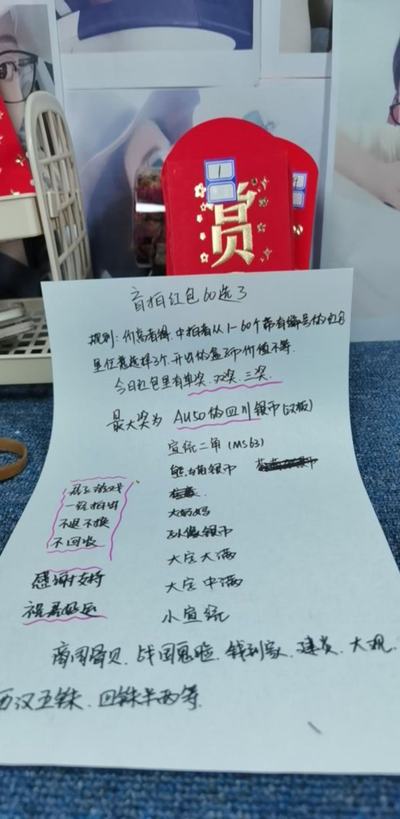 1
赏
盲拍红包60选3
规则:价高者得.中拍者从1-60个带有编号的红包
里任意选择3个.开出的盒子币价值不等.
今日红包里有单奖.双奖.三奖.
最大奖为 AU50的四川银币(汉板)
宣统二角(MS63)
熊猫银币
大奶妈
孙像银币
大定大满
大定中满
小宣统
成人游戏
一经拍出
不退不换
不回收
感谢支持
祝君好运
商周骨贝.战国鬼脸.钱到家.建炎.大观.
西汉五铢.四铢半两等.